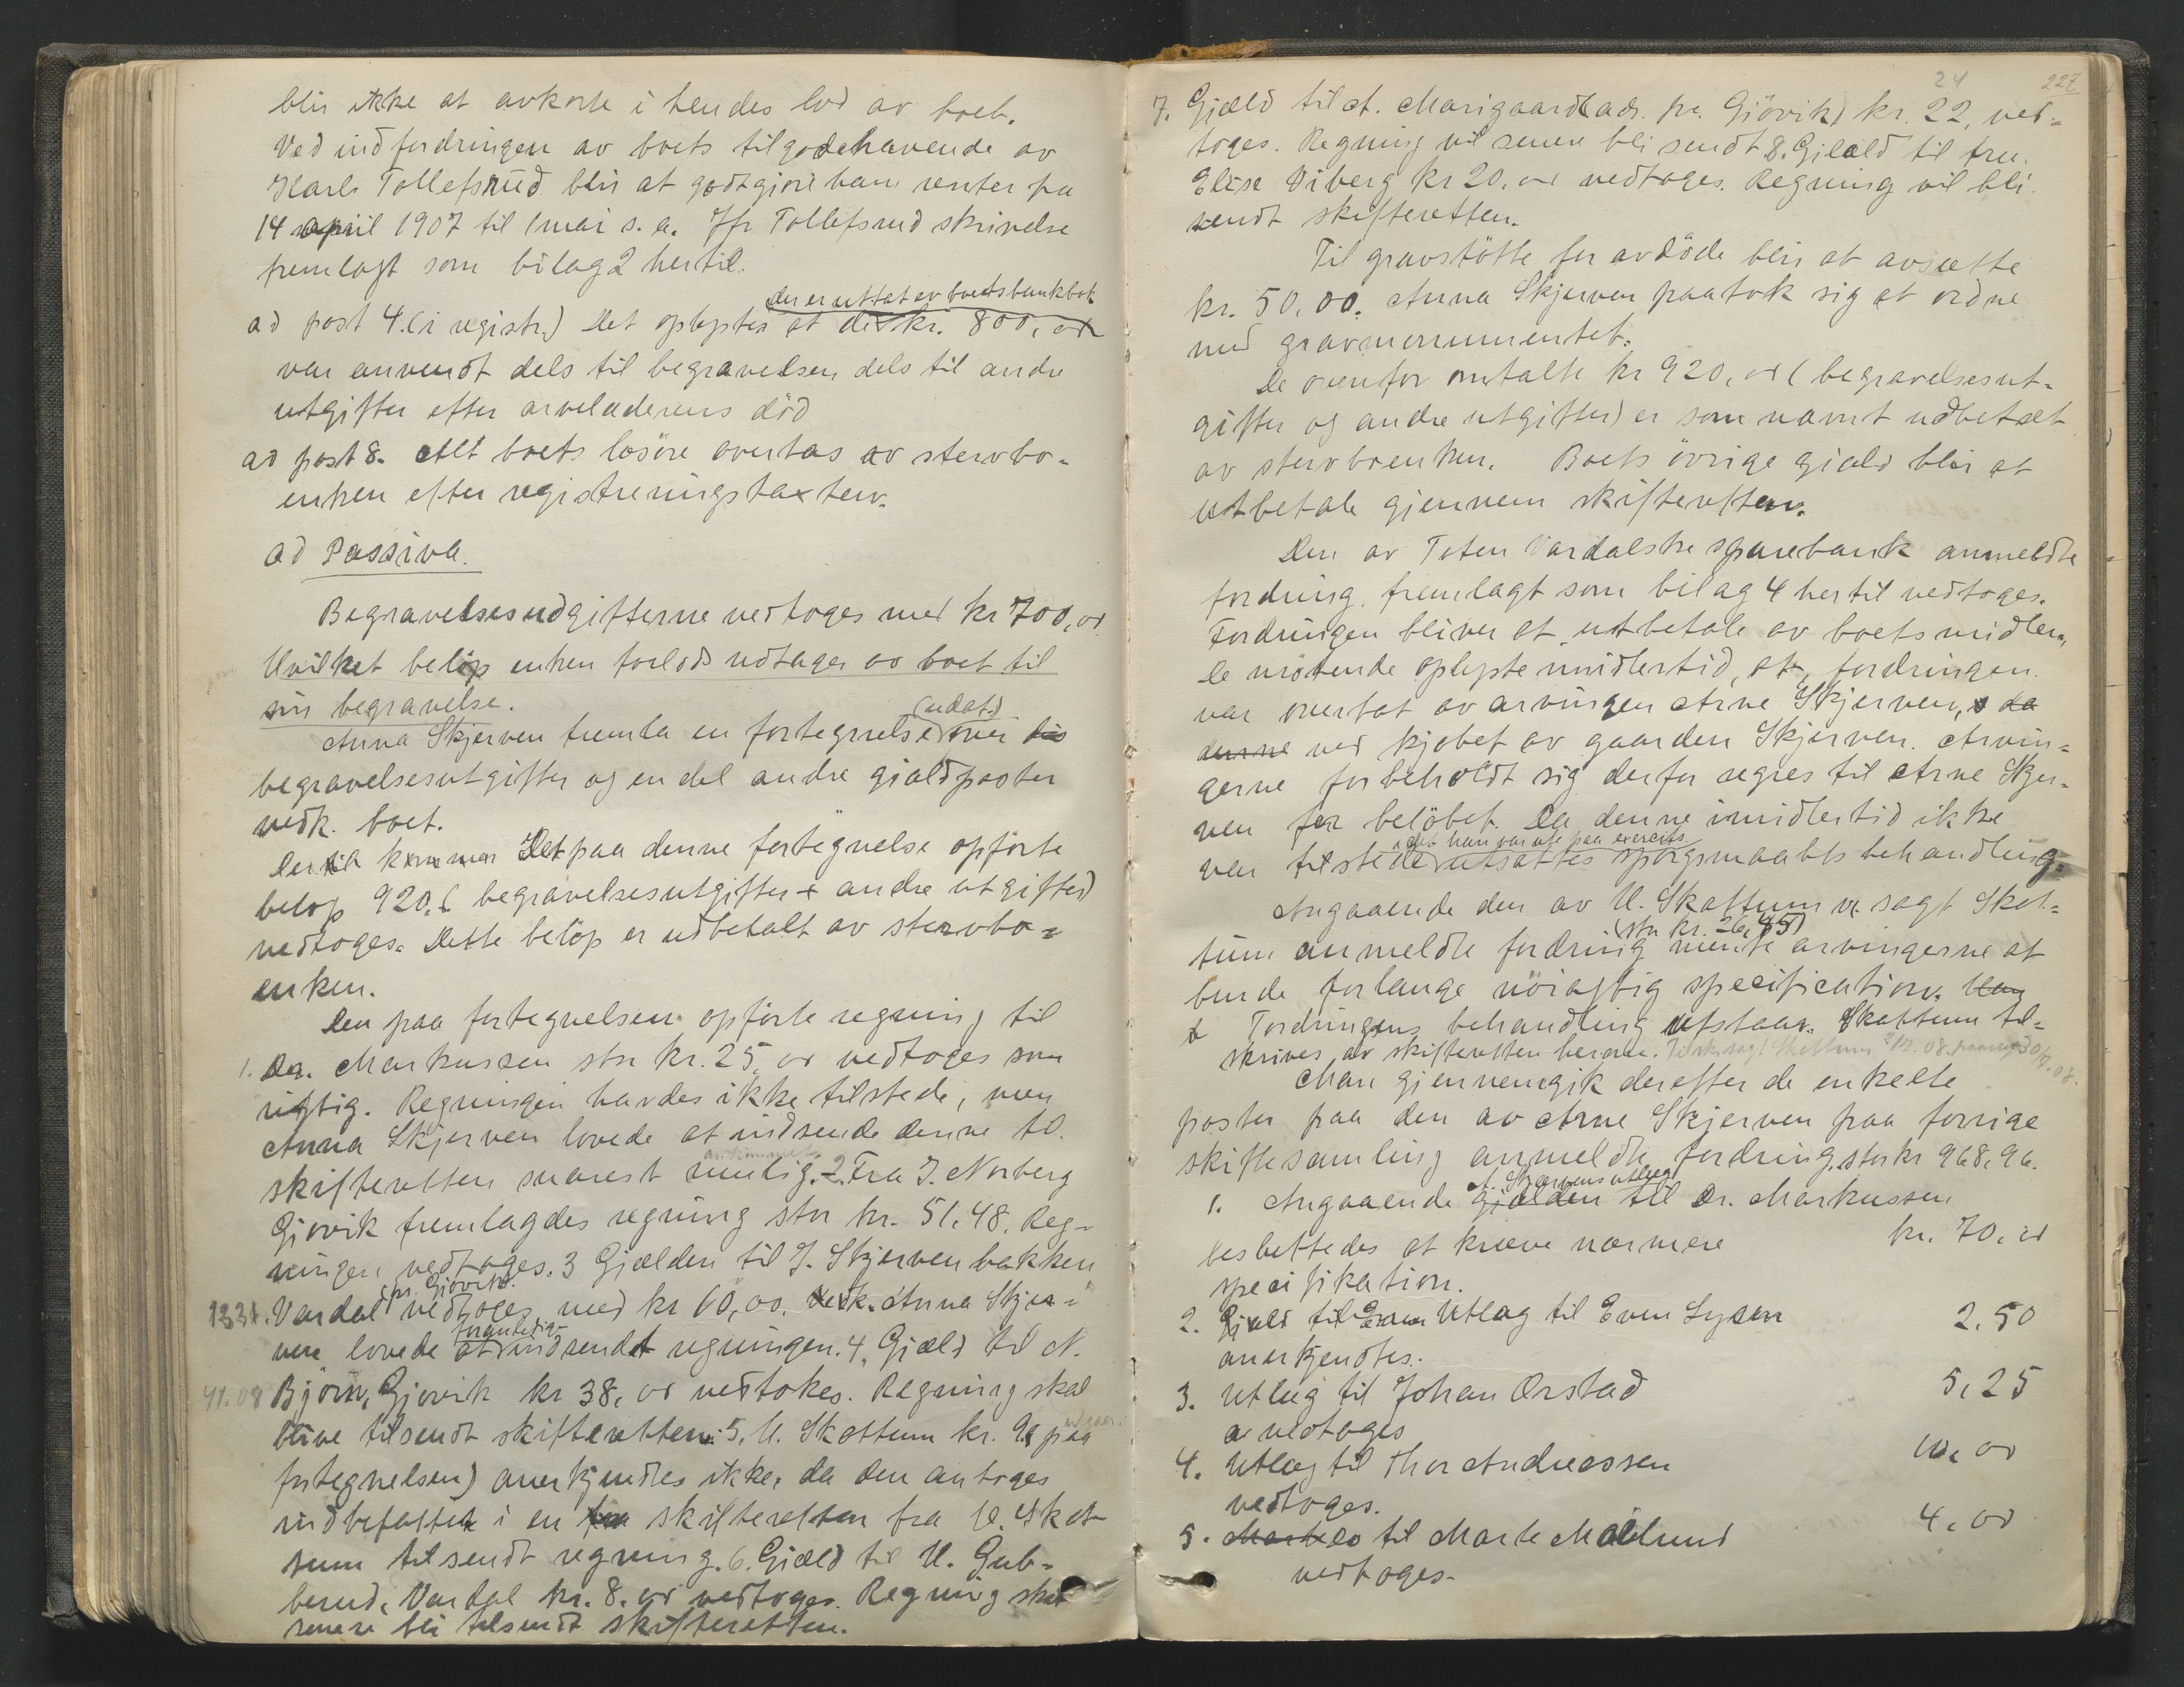 blir ikke at avkorte i hendes lod av boet.
Ved indfordringen av boets tilgodehavende av
Karls Tollefsrud blir at godtgjøre ham renter fra
14 april 1907 til 1 mai s. a. Jfr Tollefsrud skrivelse
fremlagt som bilag 2 hertil.
der er uttat av boets bankbok
ad post 4. (i registr.) Det oplystes at de kr. 800, oo
var anvendt dels til begravelsen dels til andre
utgifter efter arveladerens død
ad post 8. Alt boets løsøre overtas av stervbo-
enken efter registreringstaxten.
ad Passiva.
Begravelsesudgifterne vedtoges med kr 700, oo
Hvilket beløp enken forlods udtager av boet til
sin begravelse.
(udat.)
Anna Skjerven fremla en fortegnelse over
begravelsesutgifter og en del andre gjældsposter
vedk. boet.
Dertil kommer Det paa denne fortegnelse opførte
beløp 920. ( begravelsesutgifter + andre utgifter)
vedtoges. Dette beløp er udbetalt av stervbo-
enken.
Den paa fortegnelsen opførte regning til
1. Dr. Markussen stor kr. 25, oo vedtoges som
rigtig. Regningen havdes ikke tilstede, men
Anna Skjerven lovede at indsende denne til
ankommet
skifteretten snarest mulig. 2. Fra J. Norberg
Gjøvik fremlagdes regning stor kr. 51.48. Reg-
ningen vedtoges. 3 Gjælden til J. Skjervenbakken
(pr. Gjøvik)
Vardal vedtoges med kr 60,00. Anna Skjer-
ven lovede at indsendt regningen. 4. Gjæld til N.
Bjørn, Gjøvik kr 38, oo vedtokes. Regning skal
blive tilsendt skifteretten. 5. U. Skattum kr. 92 paa
fortegnelsen) anerkjendtes ikke, da den antoges
indbefattet i en fra skifteretten fra U. Skat-
tum tilsendt regning. 6. Gjæld til U. Gub-
berud, Vardal kr. 8. oo vedtoges. Regning skal
senere bli tilsendt skifteretten.
24 227
7. Gjæld til A. Marigaard (adr. pr. Gjøvik) kr. 22, ved-
toges. Regning vil senere bli sendt 8. Gjeld til fru
Elise Viberg kr 20, oo vedtoges. Regning vil bli
sendt skifteretten.
Til gravstøtte for avdøde blir at avsætte
kr. 50,00. Anna Skjerven paatok sig at ordne
med gravmonumentet.
De ovenfor omtalte kr 920, oo ( begravelsesut-
gifter og andre utgifter) er som nævnt udbetalt
av stervboenken. Boets øvrige gjæld blir at
utbetale gjennem skifteretten.
Den av Toten Vardalske sparebank anmeldte
fordring, fremlagt som bilag 4 hertil vedtoges.
Fordringen bliver at utbetale av boets midler.
De møtende oplyste imidlertid, at fordringen
var overtat av arvingen Arne Skjerven, da
denne ved kjøbet av gaarden Skjerven. Arvin-
gerne forbeholdt sig derfor regres til Arne Skjer-
ven for beløbet. Da denne imidlertid ikke
idet han var ute paa exercits
var tilstede utsattes spørgsmaalets behandling.
Angaaende den av U. Skattum v. sagf. Skat-
(stor kr. 26,45)
tum anmeldte fordring mente arvingerne at
burde forlange nøiagtig specification.
Fordringens behandling utstaar. Skattum til-
skrives av skifteretten herom.
Man gjennemgik derefter de enkelte
poster paa den av Arne Skjerven paa forrige
skiftesamling anmeldte fordring, stor kr 968,96.
A. Skjervens utlæg
1. Angaaende gjælden til Dr. Markussen
besluttedes at kræve nærmere kr. 70, oo
specifikation.
2. Gjæld til Even Utlæg til Even Lysen 2.50
anerkjendtes.
3. Utlæg til Johan Ørstad 5,25
vedtoges
4. Utlæg til Thor Andreassen 10, oo
vedtoges.
5. do til Marte Mælum 4, oo
vedtoges.